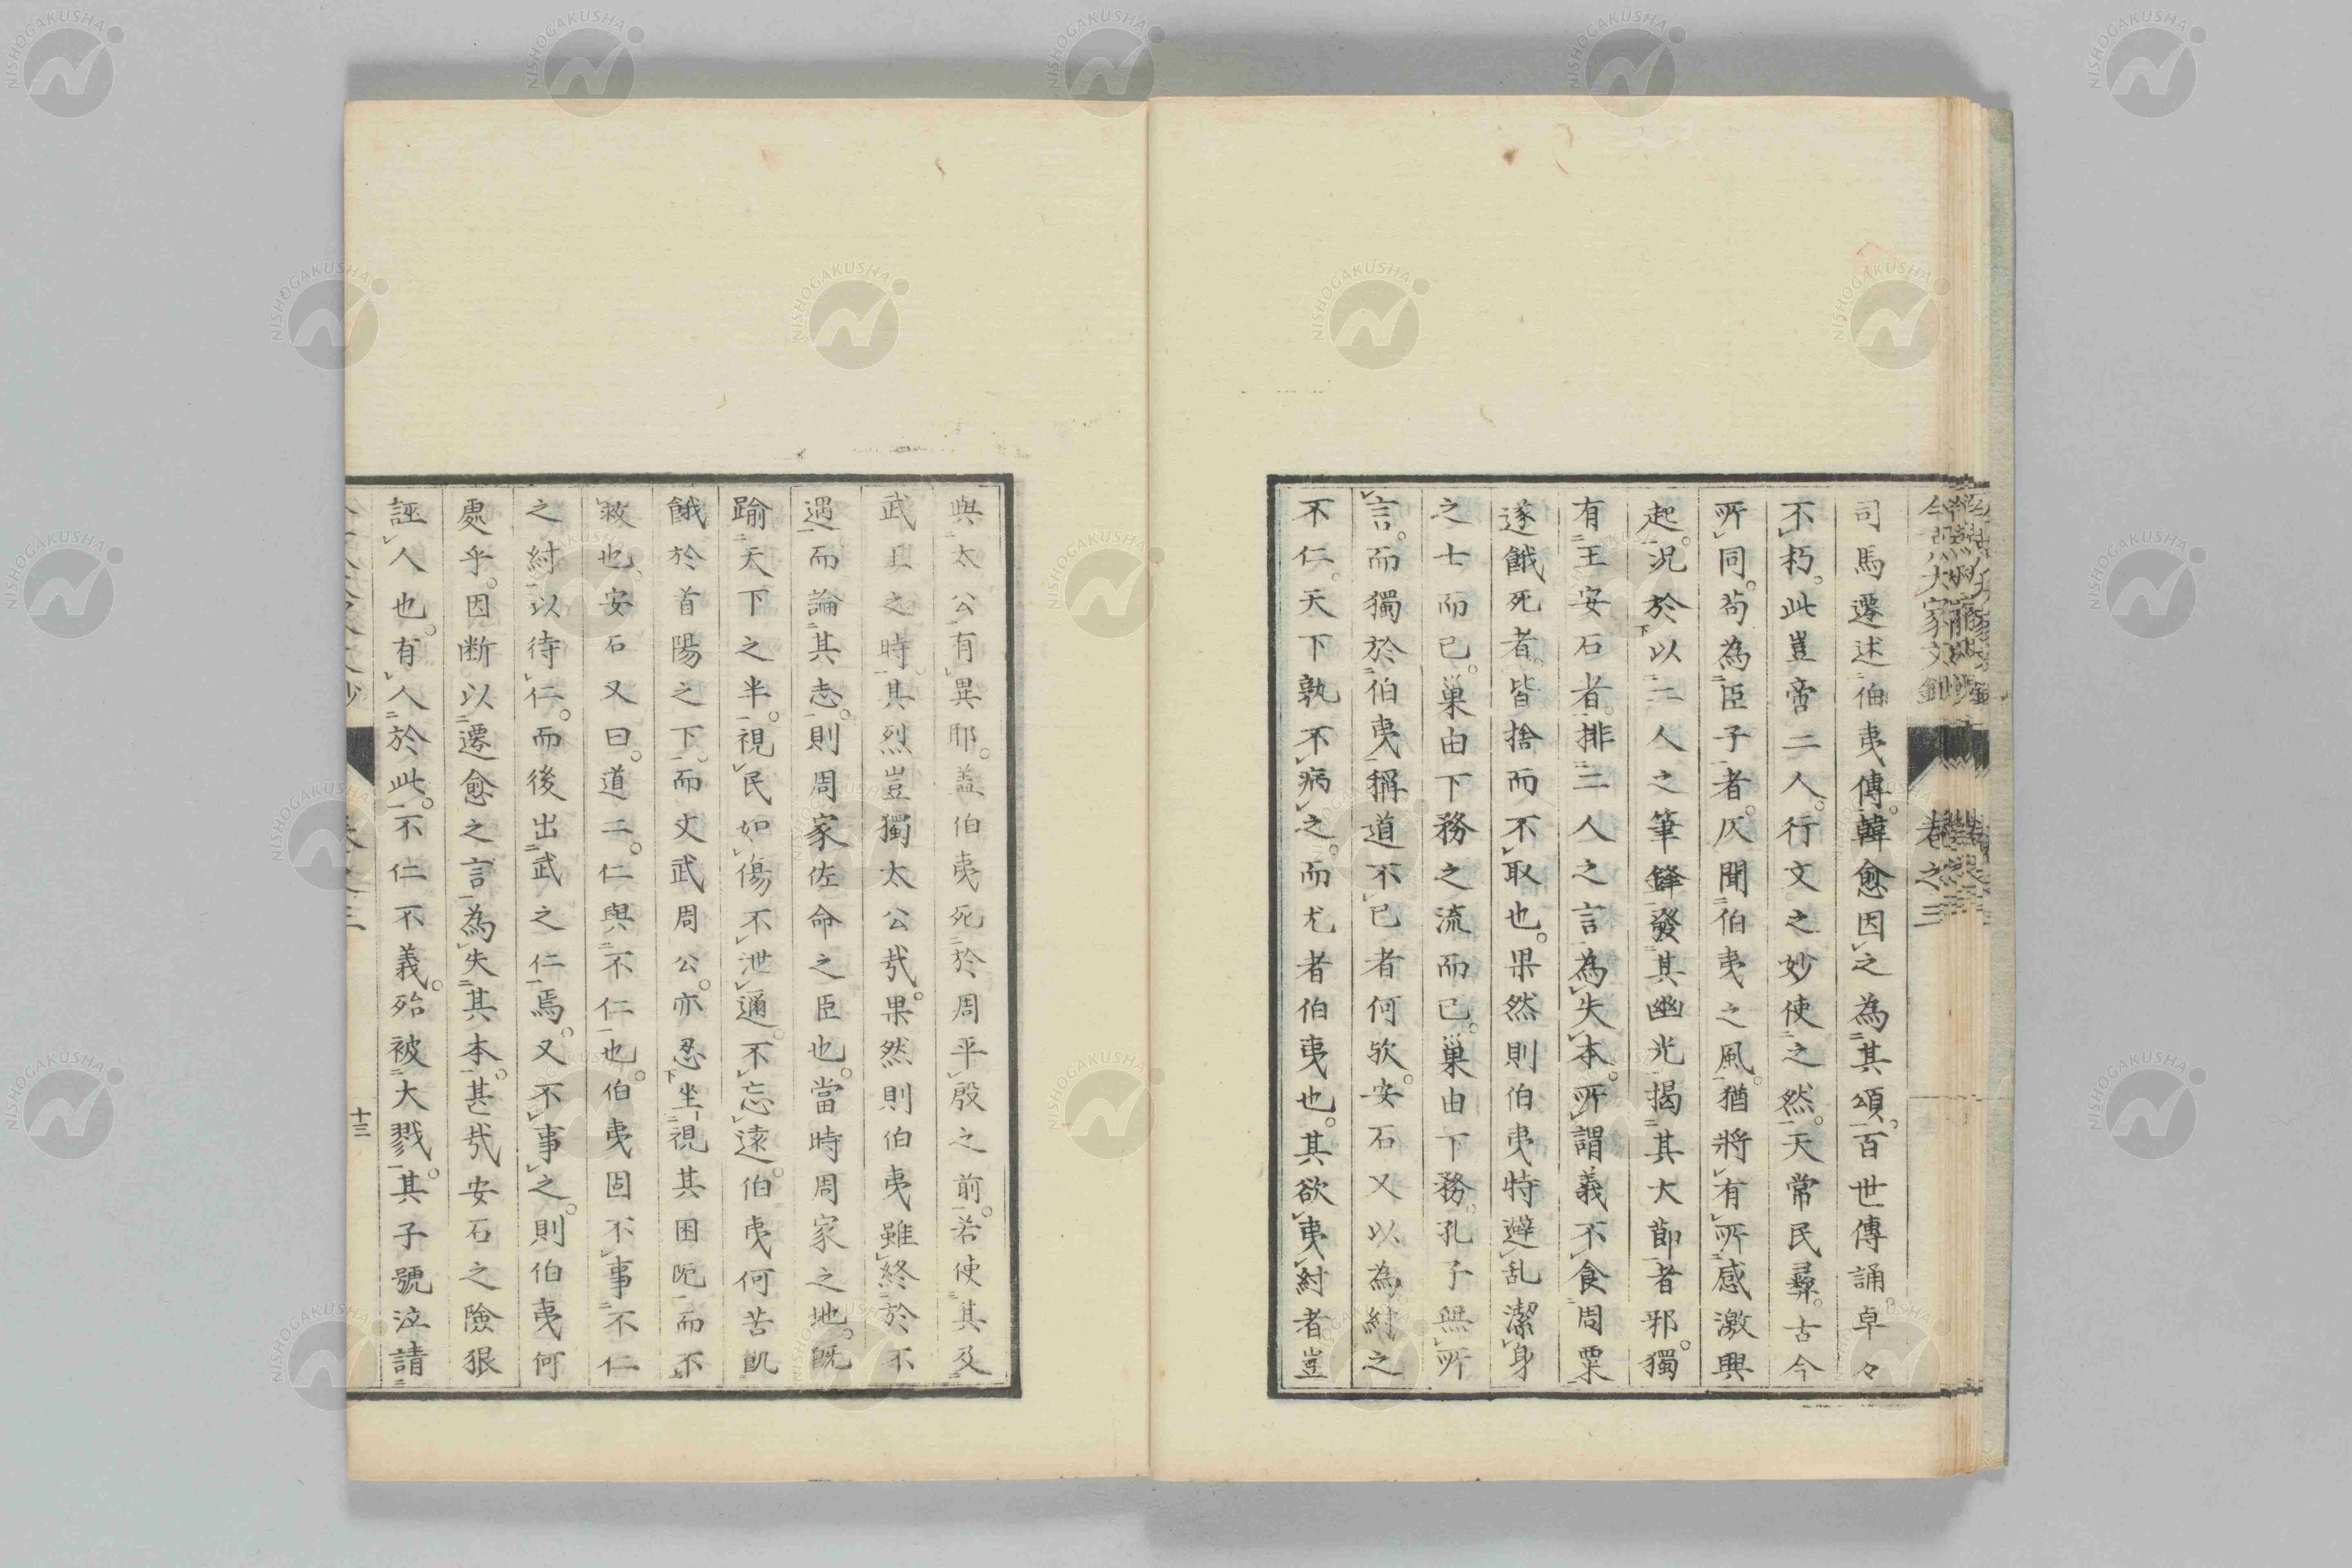 司馬遷述伯夷傳。韓愈因之為其頌。百世傳誦。卓々
不朽。此豈啻二人。行文之妙使之然。天常民彛。古今
所同。苟為臣子者。仄聞伯夷之風。猶將有所感激興
起。況於以二人之筆鋒發其幽光揭其大節者邪。獨
有王安石者。排二人之言為失本。所謂義不食周粟
遂餓死者。皆捨而不取也。果然則伯夷特避乱潔身
之士而已。巢由下務之流而已。巢由下務。孔子無所
言。而獨於伯夷稱道不已者何欤。安石又以為紂之
不仁。天下孰不病之。而尤者伯夷也。其欲夷紂者豈
與太公有異耶。蓋伯夷死於周平殷之前。若使其及
武王之時。其烈豈獨太公哉。果然則伯夷雖終於不
遇而論其志。則周家佐命之臣也。當時周家之地。既
踰天下之半。視民如傷。不泄邇。不忘遠。伯夷何苦飢
餓於首陽之下。而文武周公。亦忍坐視其困阨而不
救也。安石又曰。道二。仁與不仁也。伯夷固不事不仁
之紂以待仁。而後出武之仁焉。又不事之。則伯夷何
處乎。因断以遷愈之言為失其本。甚哉安石之險狠
誣人也。有人於此。不仁不義。殆被大戮。其子號泣請
卷之三
十三
NISHOGAKUSHA